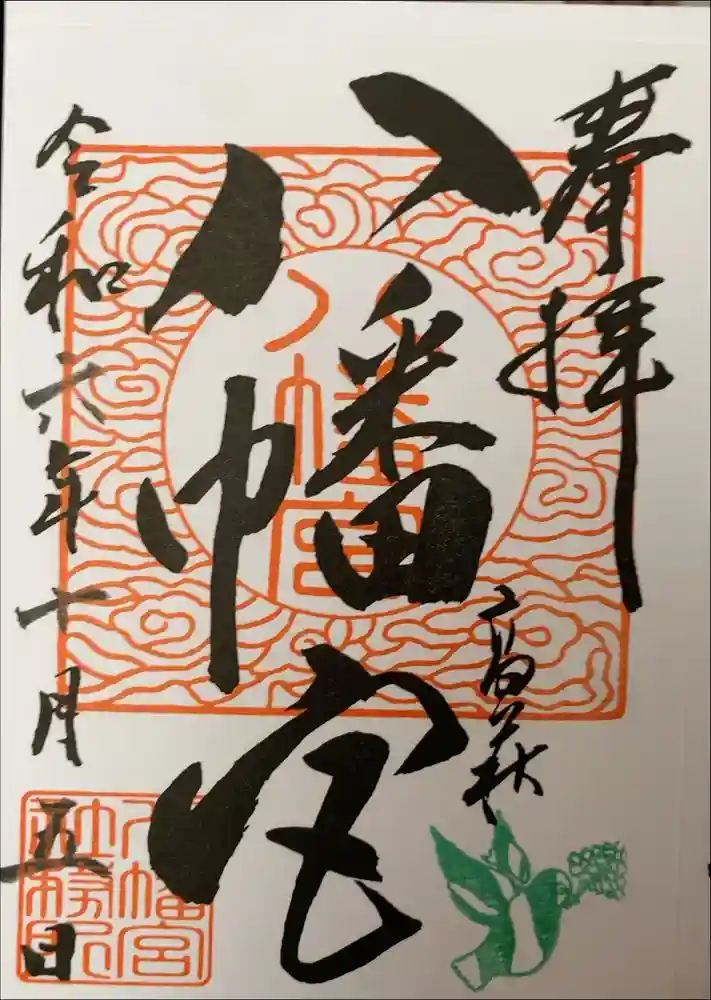 奉拝
高萩
八幡宮
八幡宮
令和六年十月五日
八幡宮
社務所